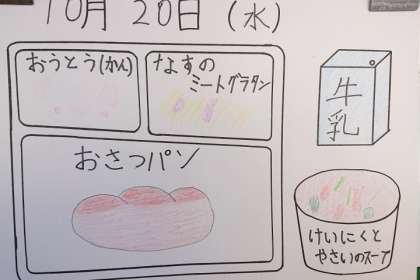 10月 20日 (水)
おうとう(かん)
なすの
ミートグラタン
牛
乳
おさつパン
けいにくと
やさいのスープ